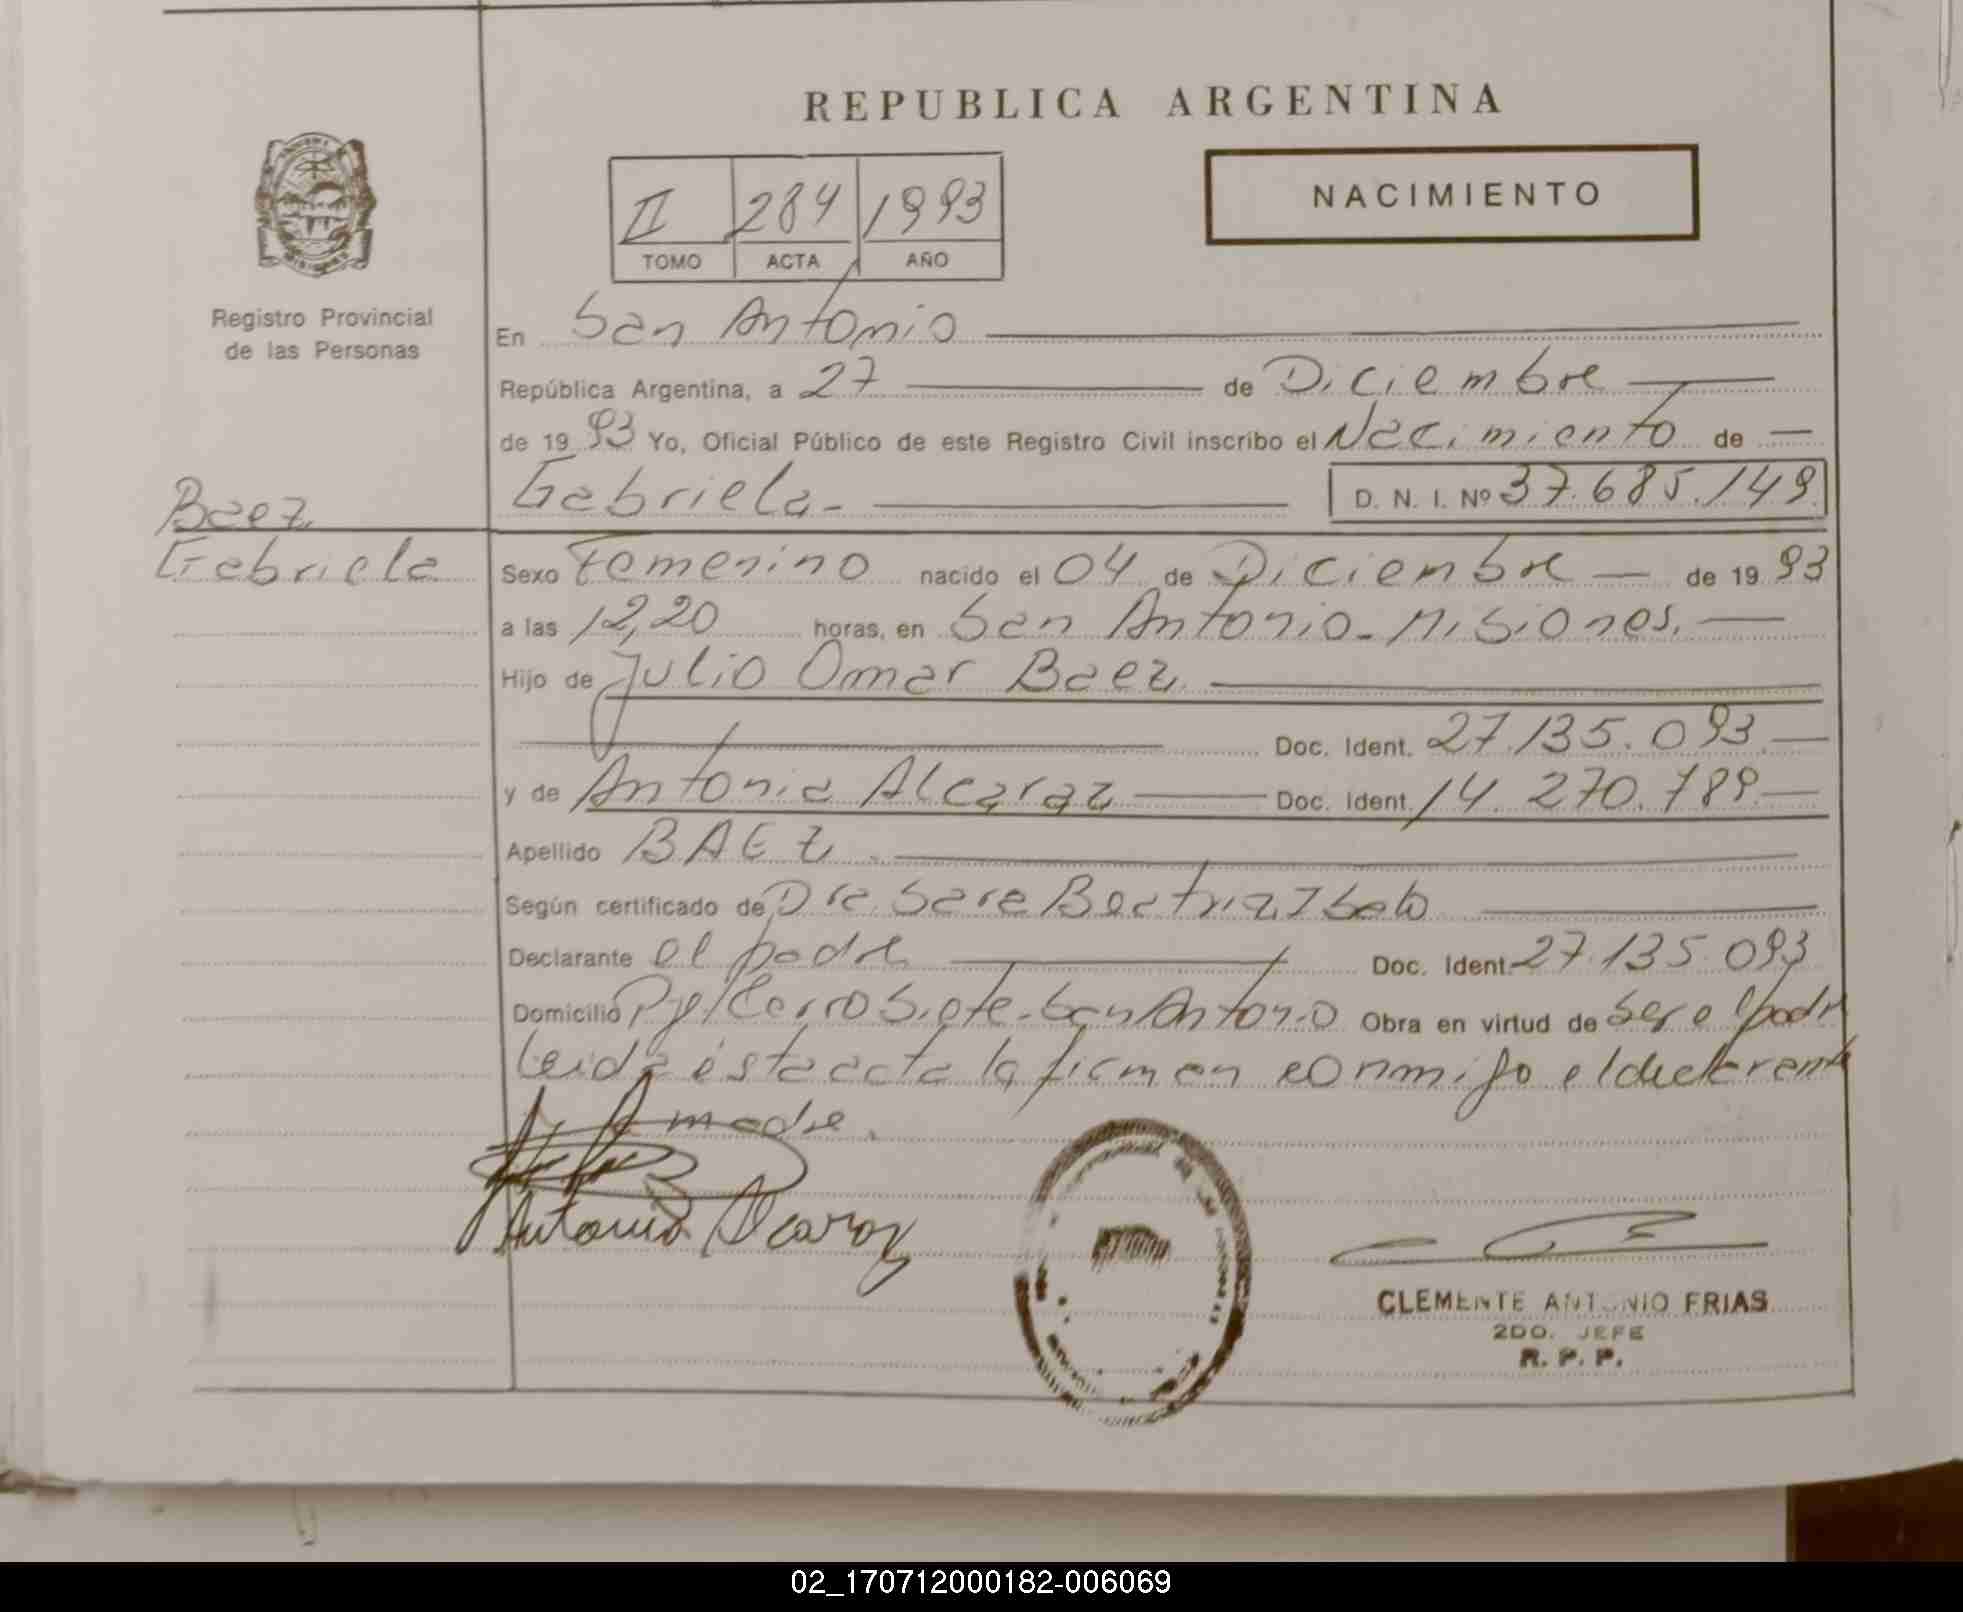 REPUBLICA ARGENTINA
NACIMIENTO
II 284 1993
TOMO ACTA AÑO
Registro Provincial
de las Personas
En San Antonio
República Argentina, a 27 de Diciembre
de 1993 Yo, Oficial Público de este Registro Civil inscribo el Nacimiento de
Gabriela- D. N. I. Nº 37.685.149
Baez
Gabriela
Sexo Femenino nacido el 04 de Diciembre de 1993
a las 12,20 horas, en San Antonio- Misiones.
Hijo de Julio Omar Baez
Doc. Ident. 27.135.093
y de Antonia Alcaraz Doc. Ident. 14.270.789
Apellido BAEZ
Según certificado de Dra. Sara Beatriz
Declarante el padre Doc. Ident. 27.135.093
Domicilio Cerro Siete- San Antonio Obra en virtud de ser el padre
Leida ésta acta la firman conmigo el declarante
madre.
Antonia Alcaraz
CLEMENTE ANTONIO FRIAS
2DO. JEFE
R. P. P.
02_170712000182-006069